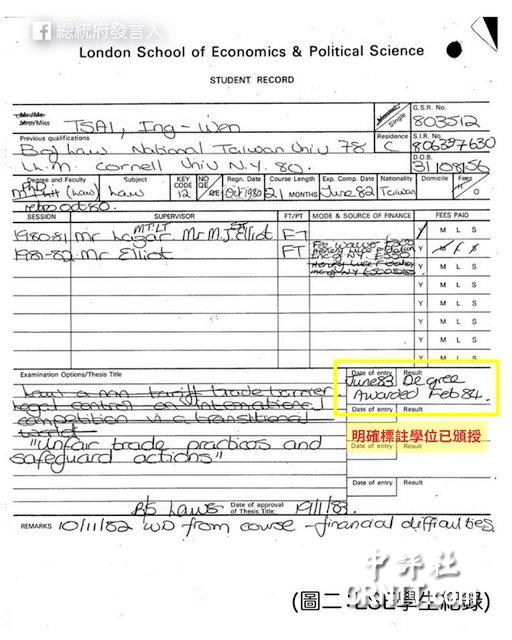 總統府發言人
London School of Economics & Political Science
STUDENT RECORD
TSAI, Ing-Wen
Single
G.S.R. No.
803512
Previous qualifications
Law National Taiwan Univ 78
LL.M. Cornell Univ N.Y. 80.
Residence
C
S.I.R. No.
806397630
D.O.B.
310856
Degree and Faculty
Subject
KEY CODE
NO QF
Regn. Date
Course Length
Exp. Comp. Date
Nationality
Domicile
Fees
PhD
(Law) Law
12
Oct 1980
21 MONTHS
June 82
Taiwan
O
retro oct 80.
SESSION
SUPERVISOR
FT/PT
MODE & SOURCE OF FINANCE
FEES PAID
1980-81 Mr Lazar Mr M.J. Elliot FT
1981-82 Mr Elliot FT
Y M L S
Y M L S
Y M L S
Y M L S
Y M L S
Examination Options/Thesis Title
Date of entry
Result
June 83 Degree
Awarded Feb 84.
Date of entry Result
明確標註學位已頒授
legal control on international
competition in a transitional
world
"Unfair trade practices and
safeguard actions"
Date of entry Result
Date of entry Result
Date of approval
of Thesis Title:
19/1/83.
REMARKS 10/11/82 WD from course - financial difficulties
中評社
CRNTT.com
(圖二：LSE學生紀錄)